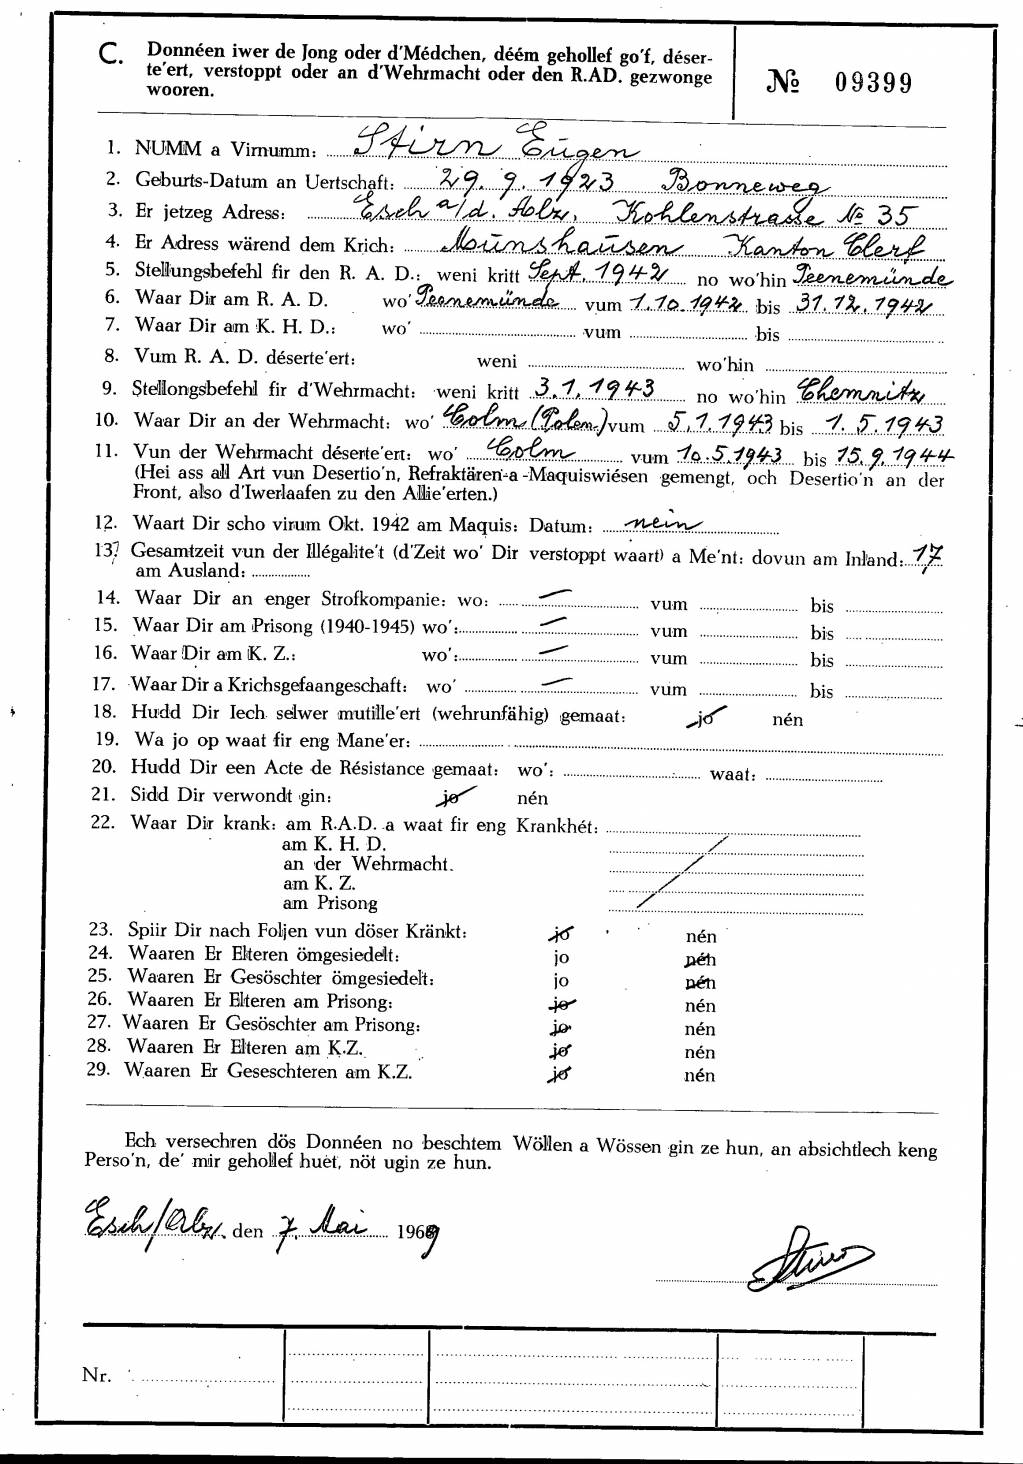 C. Donnéen iwer de Jong oder d'Médchen, déém gehollef go'f, déser-
te'ert, verstoppt oder an d'Wehrmacht oder den R.AD. gezwonge
wooren.
№ 09399
1. NUMM a Virnumm: Stirn Eugen
2. Geburts-Datum an Uertschaft: 29. 9. 1923 Bonneweg
3. Er jetzeg Adress: Esch a/d. Alz. Kohlenstrasse № 35
4. Er Adress wärend dem Krich: Munshausen Kanton Clerf
5. Stellungsbefehl fir den R. A. D.: weni kritt Sept. 1942 no wo'hin Peenemünde
6. Waar Dir am R. A. D. wo' Peenemünde vum 1.10.1942 bis 31.12.1942
7. Waar Dir am K. H. D.: wo' vum bis
8. Vum R. A. D. déserte'ert: weni wo'hin
9. Stellongsbefehl fir d'Wehrmacht: weni kritt 3.1.1943 no wo'hin Chemnitz
10. Waar Dir an der Wehrmacht: wo' Colm (Polen) vum 5.1.1943 bis 1.5.1943
11. Vun der Wehrmacht déserte'ert: wo' Colm vum 10.5.1943 bis 15.9.1944
(Hei ass all Art vun Desertio'n, Refraktären-a-Maquiswiésen gemengt, och Desertio'n an der
Front, also d'Iwerlaafen zu den Allie'erten.)
12. Waart Dir scho virum Okt. 1942 am Maquis: Datum: nein
13. Gesamtzeit vun der Illégalite't (d'Zeit wo' Dir verstoppt waart) a Me'nt: dovun am Inland: 17
am Ausland:
14. Waar Dir an enger Strofkompanie: wo: — vum bis
15. Waar Dir am Prisong (1940-1945) wo': — vum bis
16. Waar Dir am K. Z.: wo': — vum bis
17. Waar Dir a Krichsgefaangeschaft: wo' — vum bis
18. Hudd Dir Iech selwer mutille'ert (wehrunfähig) gemaat: jo nén
19. Wa jo op waat fir eng Mane'er:
20. Hudd Dir een Acte de Résistance gemaat: wo': waat:
21. Sidd Dir verwondt gin: jo nén
22. Waar Dir krank: am R.A.D. a waat fir eng Krankhét:
am K. H. D.
an der Wehrmacht.
am K. Z.
am Prisong
23. Spiir Dir nach Foljen vun döser Kränkt: jo nén
24. Waaren Er Elteren ömgesiedelt: jo nén
25. Waaren Er Gesöschter ömgesiedelt: jo nén
26. Waaren Er Elteren am Prisong: jo nén
27. Waaren Er Gesöschter am Prisong: jo nén
28. Waaren Er Elteren am K.Z. jo nén
29. Waaren Er Geseschteren am K.Z. jo nén
Ech versechren dös Donnéen no beschtem Wöllen a Wössen gin ze hun, an absichtlech keng
Perso'n, de' mir gehollef huet, nöt ugin ze hun.
Esch/Alz. den 7. Mai 1969
Stirn
Nr.